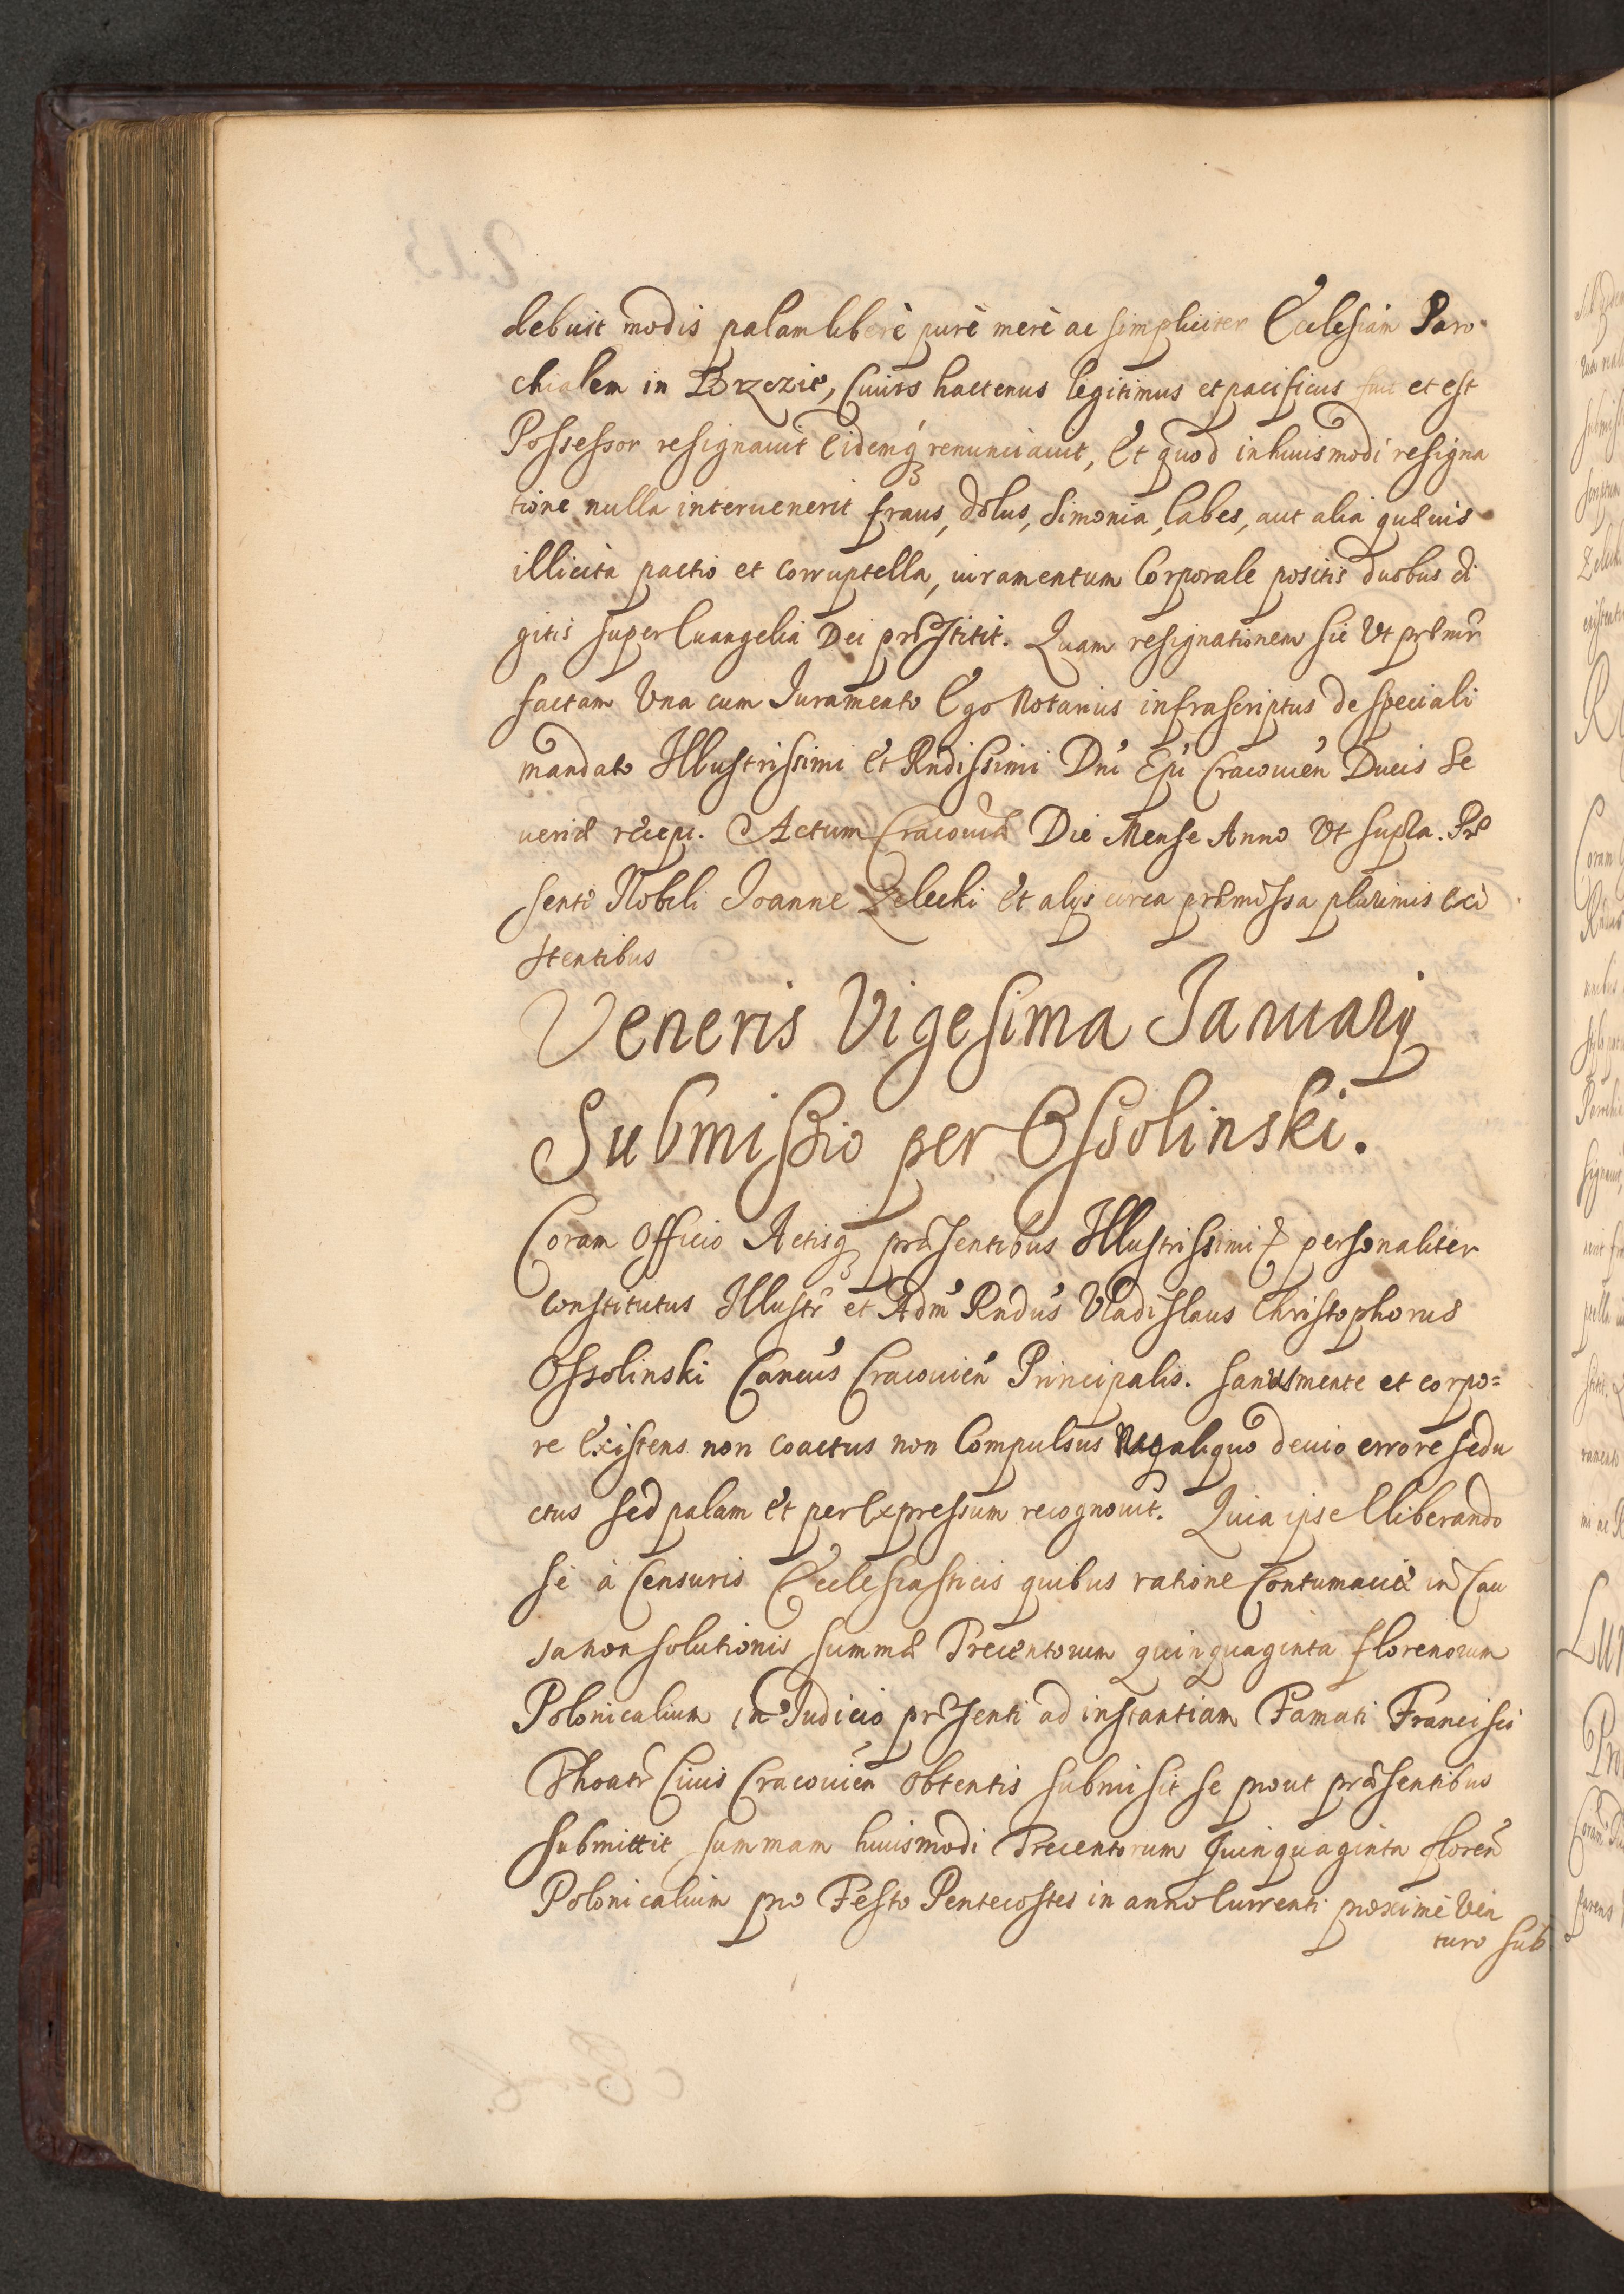 debuit modis palam liberè purè merè ac simpliciter Ecclesiam Paro
chialem in Brzezie, Cuius hactenus legitimus et pacificus fuit et est
Possessor resignauit Eidemq́ renunciauit, Et quod in huiusmodi resigna
tione nulla interuenerit fraus, dolus, Simonia, labes, aut alia quæuis
illicita pactio et corruptella, iuramentum Corporale positis duobus di
gitis super Euangelia Dei præstitit. Quam resignationem sic Vt præmr̃
factam Vna cum Iuramento Ego Notarius infrascriptus de speciali
mandato Illustrissimi Et Rndissimi Dni Epi Cracouień Ducis Se
ueriæ recepi. Actum Cracouiæ Die Mense Anno Vt supra. Præ
sente Nobili Joanne Zelecki Et alijs circa præmissa plurimis exi
stentibus
Veneris Vigesima Januarij
Submissio per Ossolinski.
Coram Officio Actisq́ præsentibus Illustrissimi & personaliter
constitutus Illustr̃ et Adm̃ Rndus Vladislaus Christophorus
Ossolinski Cancus Cracouień Principalis. sanus mente et corpo=
re Existens non coactus non Compulsus Neq aliquo deuio errore sedu
ctus sed palam Et per Expressum recognouit. Quia ipse Eliberando
se à Censuris Ecclesiasticis quibus ratione Contumaciæ in Cau
sa non solutionis summæ Trecentorum quinquaginta florenorum
Polonicalium in Judicio præsenti ad instantiam Famati Francisci
Civis Cracouień obtentis submisit se prout præsentibus
submittit summam huiusmodi Trecentorum quinquaginta floreń
Polonicalium pro Festo Pentecostes in anno Currenti proximè Ven
turo sub